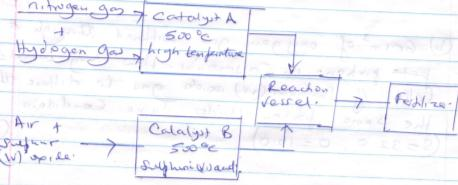 nitrogen gas
+
Hydrogen gas
Catalyst A
500°C
high temperature
Reaction
vessel.
Fertilizer
Air +
Sulphur
(IV) oxide.
Catalyst B
500°C